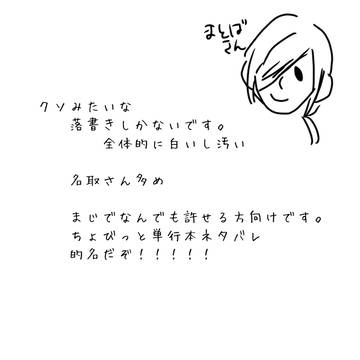 まとば
さん
クソみたいな
落書きしかないです。
全体的に白いし汚い
名取さん多め
まじでなんでも許せる方向けです。
ちょびっと単行本ネタバレ
的名だぞ！！！！！